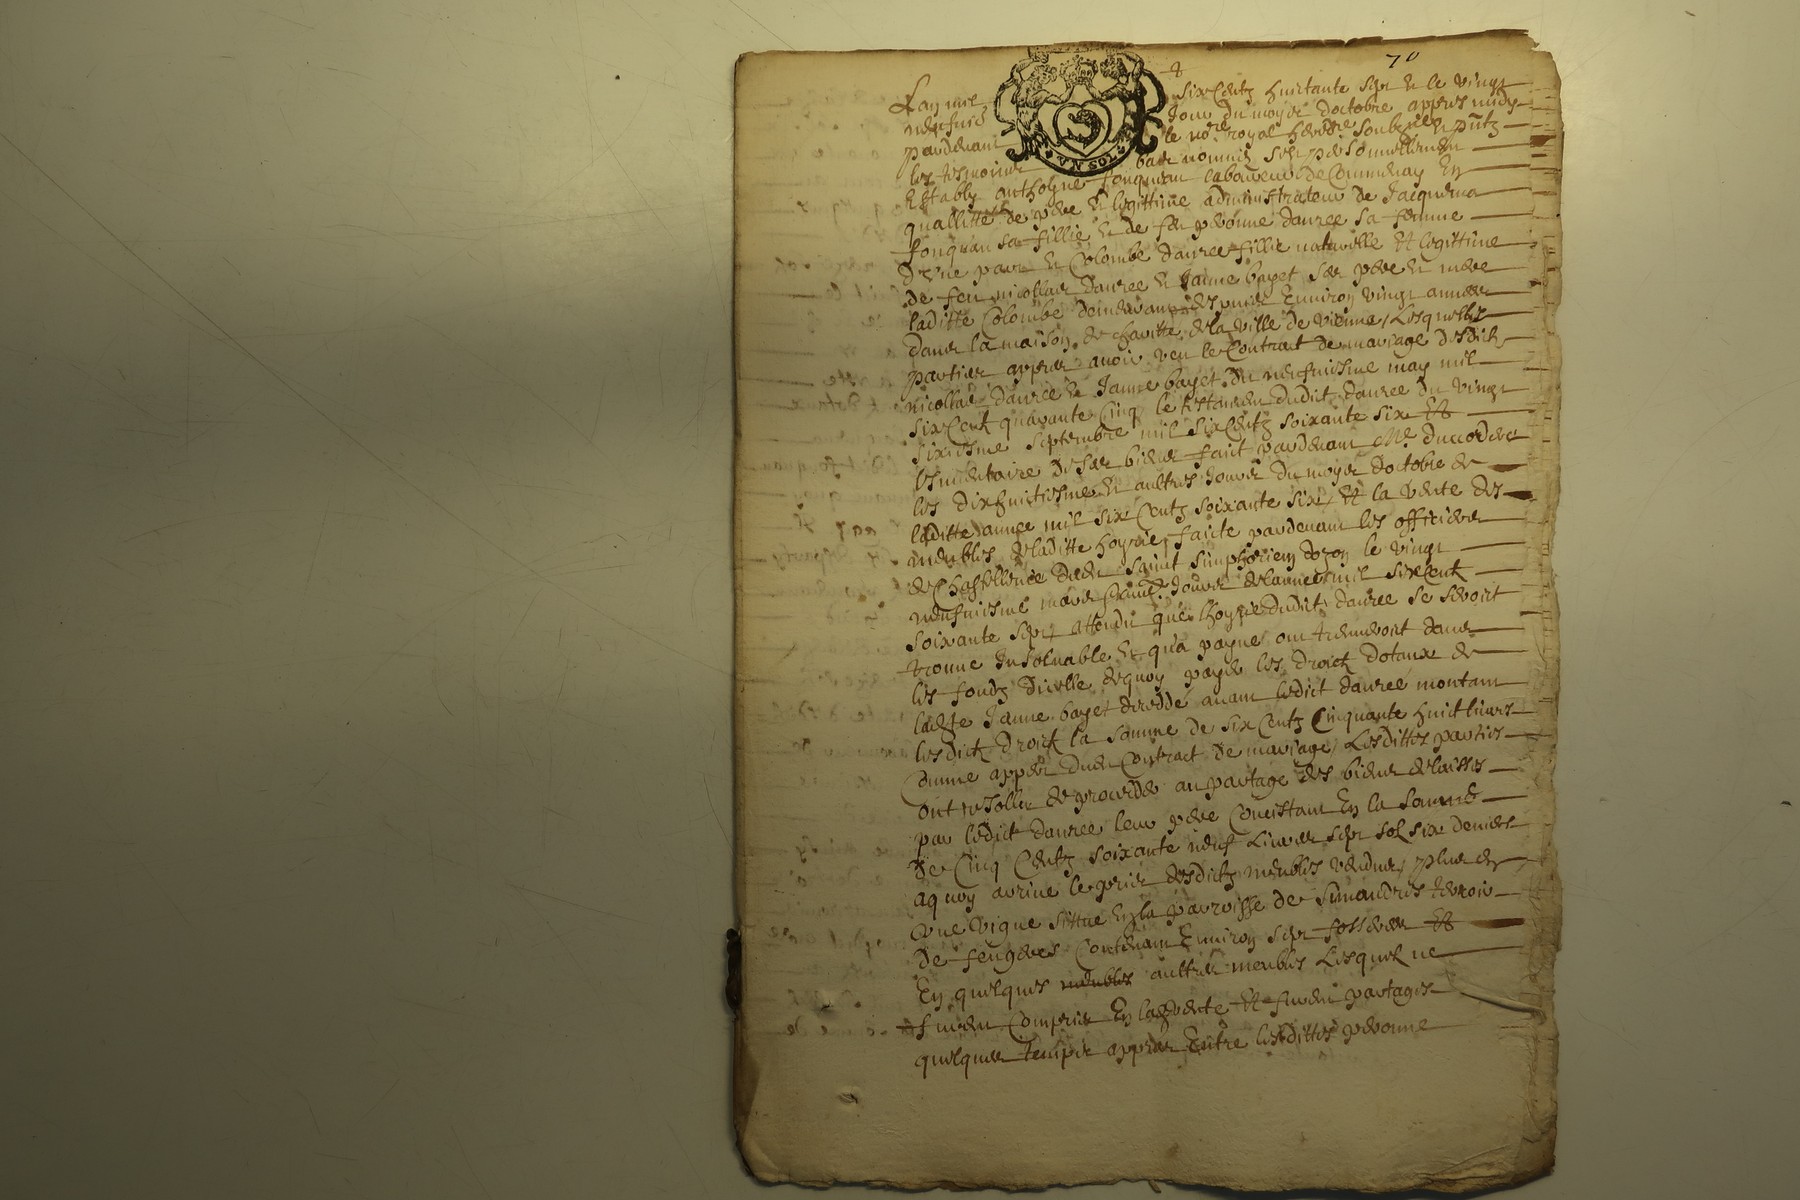 70
Lan mil six Centz huictante sept et le vingt
neufvie Jour du moys doctobre appres midy
pardevant le nore royal hereditre soubzne et pntz
les tesmoins bas nommes sest personnellement
Estably anthoyne fonquan laboureur de Communay En
quallitté de pere et legittime administrateur de Jacquema
fonquan sa fillie et de feu peronne dauree sa femme
Dune part et Colombe dauree fillie naturelle Et legittime
de feu nicollas dauree et Janne bayet ses pere et mere
laditte Colombe demeurant despuis Environ vingt annees
dans la maison de charitte de la ville de vienne, Lesquelles
parties appres avoir veu le Contract de mariage desdictz
nicollas dauree et Janne bayet du neufviesme may mil
six Cent quarante Cinq le testament dudict dauree du vingt
sixiesme septembre mil six Centz soixante six Et
lesventaire de ses biens faict pardevant Me ducordier
les dixhuictiesme et aultres Jours du moys doctobre de
laditte annee mil six Centz soixante six, Et la vente des
meubles de laditte hoyrie, faicte pardevant les officiers
de Chastellenie dudt saint simphorien dozon le vingt
neufviesme mars suivt Jours de lannee mil six Cent
soixante sept attendu que lhoyrie dudict dauree se seroit
trouve Insolvable et qua payne on treuveroit dans
les fondz dicelle dequoy payer les droictz dotaux de
ladte Janne bayet decedde avant ledict dauree montant
lesdictz droictz la somme de six Centz Cinquante huict livres
Comme appert dudt Contract de mariage, Lesdittes parties
ont resollu de proceder au partage des biens delaisses
par ledict dauree leur pere Consistant En la somme
de Cinq Centz soixante neuf Livres sept solz six deniers
aquoy arrive le prix desdictz meubles vendus, plus en
Une vigne sittue En la parroisse de simandres terroir
de feugeres Contenant Environ sept fosserees Et
En quelques meubles aultres meubles Lesquelz ne
furent Compris En ladte vente Et furent partages
quelques temps appres Entre lesdittes peronne